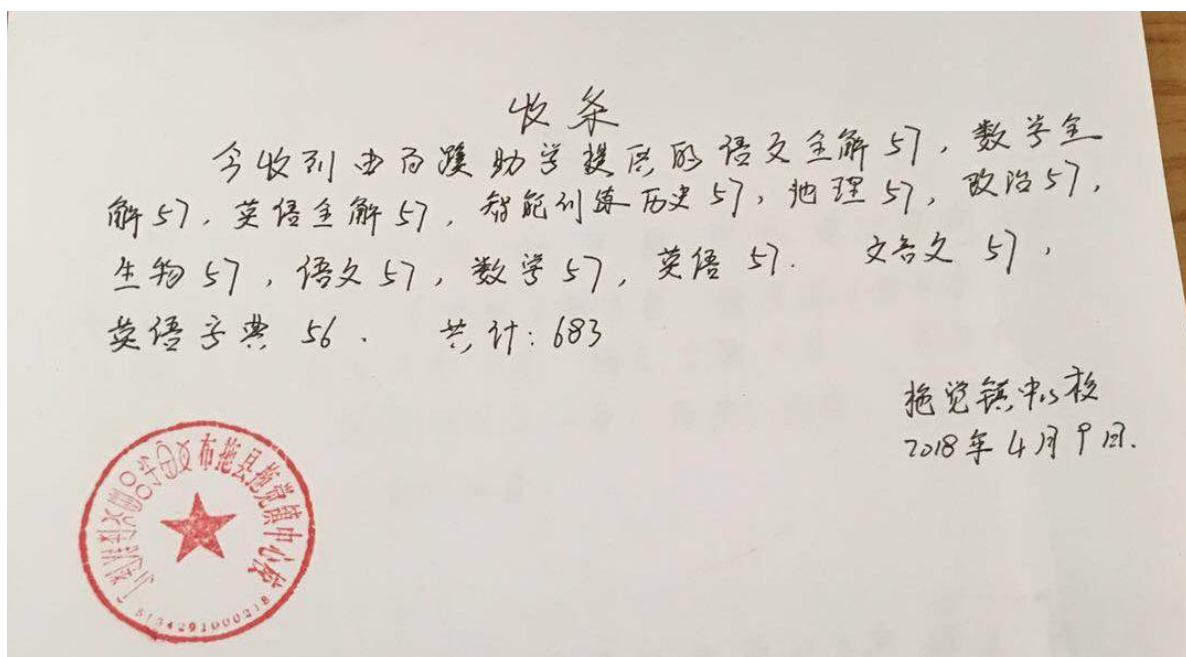 收条
今收到由百蹊助学提供的语文全解57，数学全
解57，英语全解57，智能训练历史57，地理57，政治57，
生物57，语文57，数学57，英语57. 文言文57，
英语字典56. 共计：683
拖觉镇中心校
2018年4月9日.
布拖县拖觉镇中心校
5134291000218